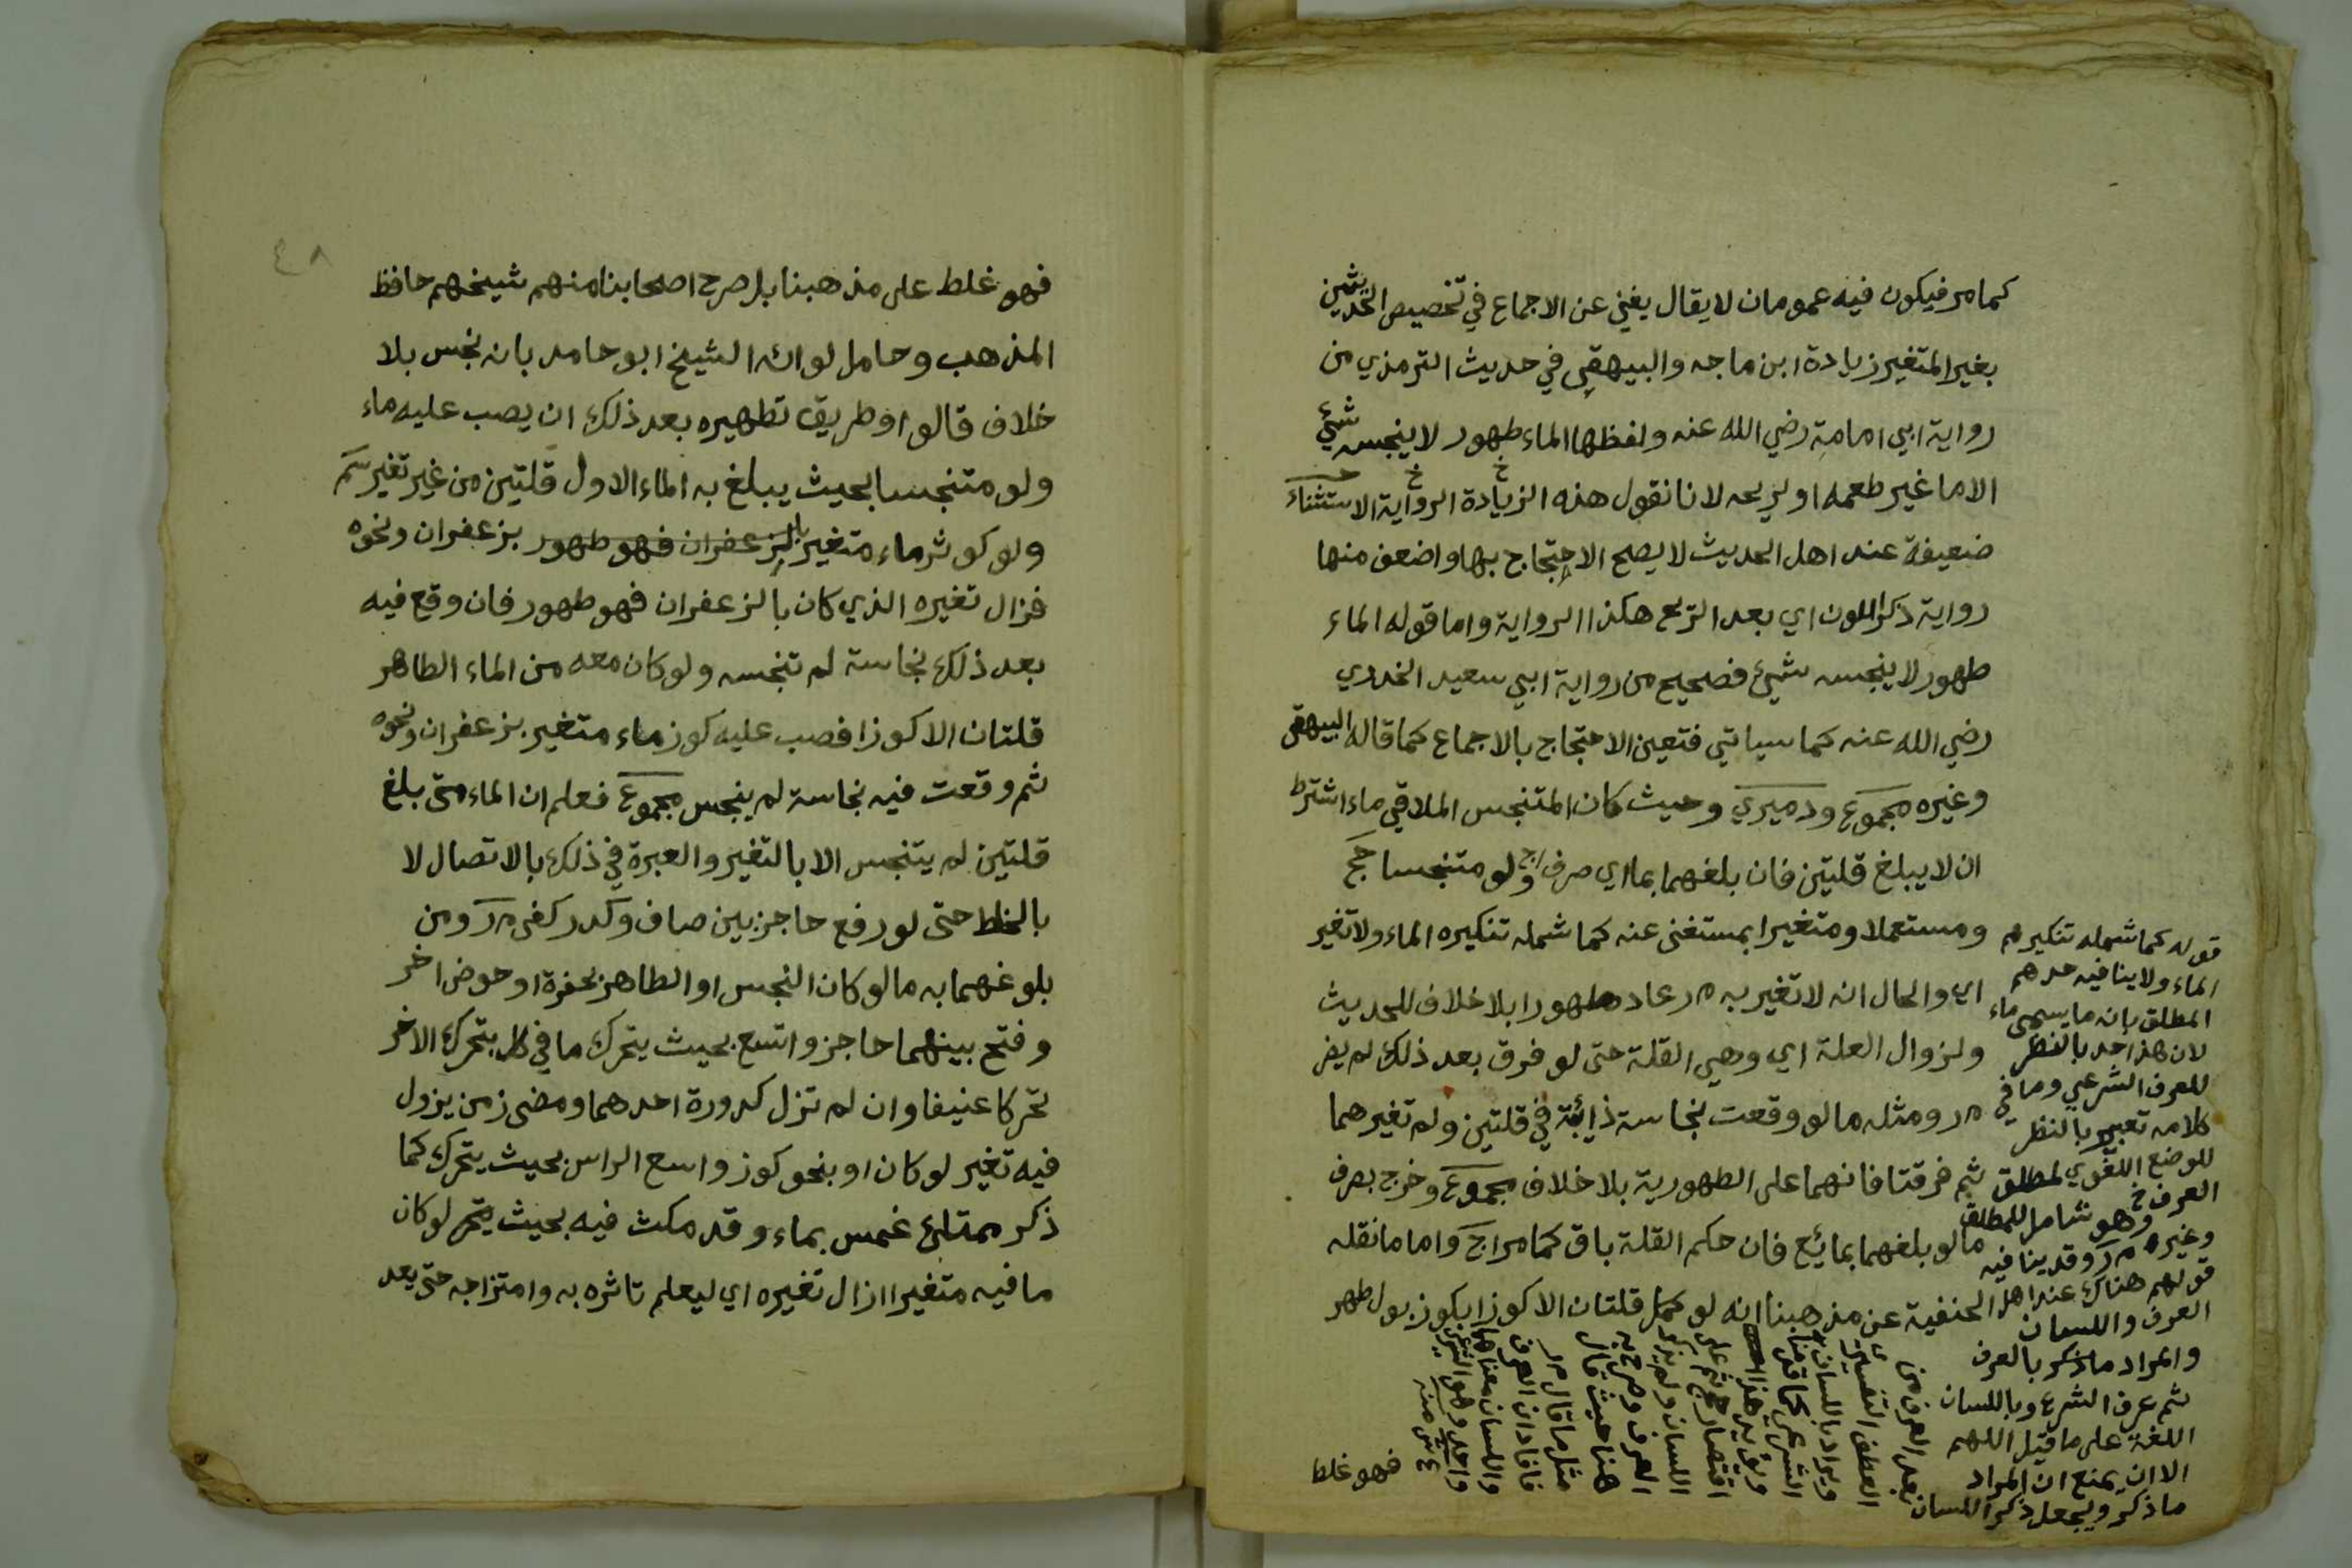 كما مر فيكون فيه عمومان لا يقال يغني عن الاجماع في تخصيص الحديثين
بغير المتغير زيادة ابن ماجه والبيهقي في حديث الترمذي من
رواية ابي امامة رضي الله عنه ولفظها الماء طهور لا ينجسه شئ
الا ما غير طعمه او ريحه لانا نقول هذه الزيادة الرواية الاستثناء
ضعيفة عند اهل الحديث لا يصح الاحتجاج بها واضعف منها
رواية ذكر اللون اي بعد الريح هكذا الرواية واما قوله الماء
طهور لا ينجسه شئ فصحيح من رواية ابي سعيد الخدري
رضي الله عنه كما سياتي فتعين الاحتجاج بالاجماع كما قاله البيهقي
وغيره مجموع ودميري وحيث كان المتنجس الملاقي ماء اشترط
ان لا يبلغ قلتين فان بلغهما بماء اي صرف ولو متنجسا حج
ومستعملا ومتغيرا بمستغنى عنه كما شمله تنكيره الماء ولا تغير
اي والحال انه لا تغير به م ر عاد طهورا بلا خلاف للحديث
ولزوال العلة اي وهي القلة حتى لو فرق بعد ذلك لم يضر
م ر ومثله ما لو وقعت نجاسة ذائبة في قلتين ولم تغيرهما
ثم فرقتا فانهما على الطهورية بلا خلاف مجموع وخرج بصرف
ما لو بلغهما بمائع فان حكم القلة باق كما مر اج واما ما نقله
الحنفية عن مذهبنا انه لو كمل قلتان الا كوزا بكوز بول طهر
فهو غلط
قوله كما شمله تنكيرهم
الماء ولا ينافيه حدهم
المطلق بانه ما يسمى ماء
لان هذا حد بالنظر
للعرف الشرعي وما في
كلامه تعبير بالنظر
للوضع اللغوي لمطلق
العرف وهو شامل للمطلق
وغيره م ر وقد ينافيه
قولهم هناك عند اهل
العرف واللسان
والمراد ما ذكر بالعرف
ثم عرف الشرع وباللسان
اللغة على ما قيل اللهم
الا ان يمنع ان المراد
ما ذكر ويجعل ذكر اللسان
بعد العرف من
العطف التفسيري
ويراد باللسان
الشرعي كما قدمنا
ويؤيد هذا
اقتصار حج ثم على
اللسان ولم يذكر
العرف وصرح به
هنا حيث قال
مثل ما قال م ر
فافاد ان العرف
واللسان معناهما
واحد وهو الشرعي
ع ش منه
٤٨
فهو غلط على مذهبنا بل صرح اصحابنا منهم شيخهم حافظ
المذهب وحامل لوائه الشيخ ابو حامد بانه نجس بلا
خلاف قالوا وطريق تطهيره بعد ذلك ان يصب عليه ماء
ولو متنجسا بحيث يبلغ به الماء الاول قلتين من غير تغير
ولو كوثر ماء متغير بالزعفران فهو طهور بزعفران ونحوه
فزال تغيره الذي كان بالزعفران فهو طهور فان وقع فيه
بعد ذلك نجاسة لم تنجسه ولو كان معه من الماء الطاهر
قلتان الا كوزا فصب عليه كوز ماء متغير بزعفران ونحوه
ثم وقعت فيه نجاسة لم ينجس مجموع فعلم ان الماء متى بلغ
قلتين لم يتنجس الا بالتغير والعبرة في ذلك بالاتصال لا
بالخلط حتى لو رفع حاجز بين صاف وكدر كفى م ر ومن
بلوغهما به ما لو كان النجس او الطاهر بحفرة او حوض اخر
وفتح بينهما حاجز واتسع بحيث يتحرك ما في كل بتحرك الاخر
تحركا عنيفا وان لم تزل كدورة احدهما ومضى زمن يزول
فيه تغير لو كان او بنحو كوز واسع الراس بحيث يتحرك كما
ذكر ممتلئ غمس بماء وقد مكث فيه بحيث لو كان
ما فيه متغيرا ازال تغيره اي ليعلم تاثره به وامتزاجه حتى يعد